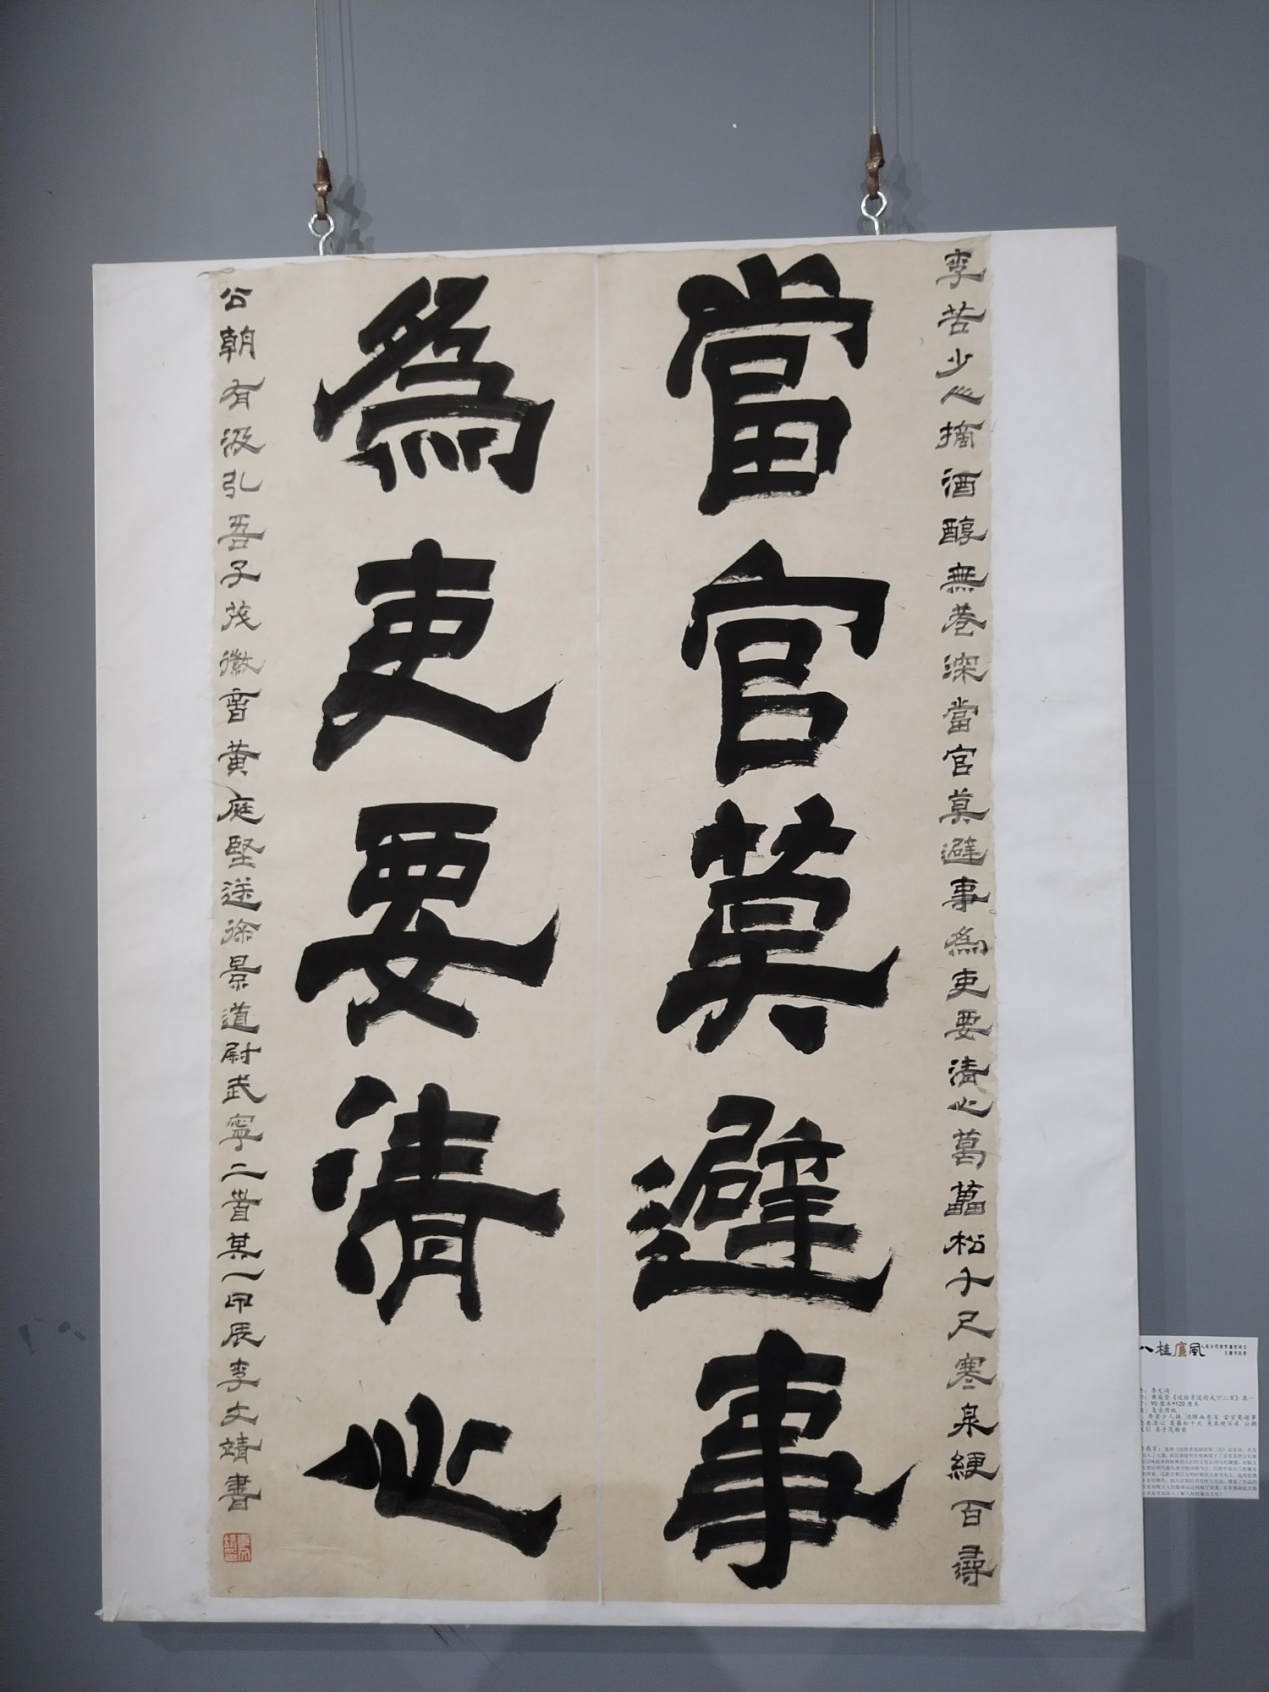 李苦少人摘酒醇無巷深當官莫避事為吏要清心葛藟松千尺寒泉綆百尋
當官莫避事
為吏要清心
公朝有汲引吾子茂徽音黃庭堅送徐景道尉武寧二首其一甲辰李文靖書
八桂廉風